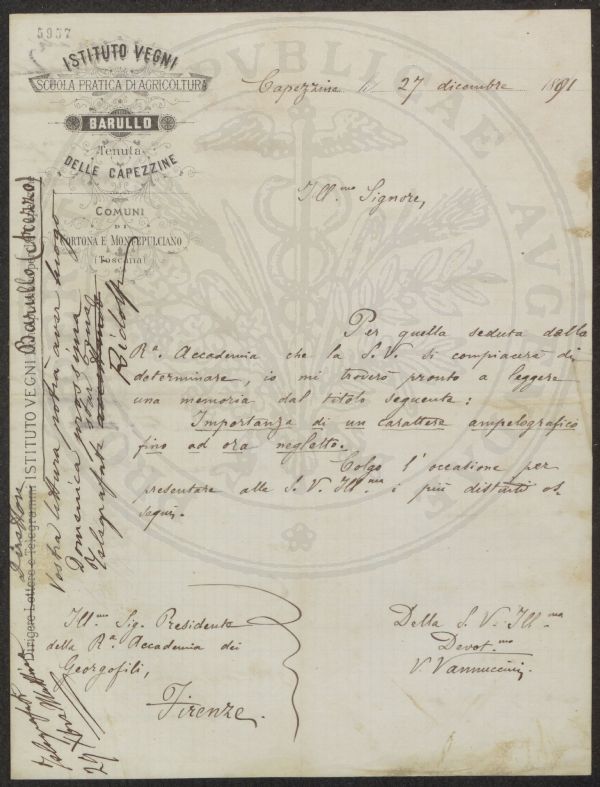 5957
ISTITUTO VEGNI
SCUOLA PRATICA DI AGRICOLTURA
BARULLO
Tenuta
DELLE CAPEZZINE
COMUNI
DI
CORTONA E MONTEPULCIANO
(Toscana)
Capezzine li 27 dicembre 1891
Ill.mo Signore,
Per quella seduta dalla
R.a Accademia che la S. V. si compiacerà di
determinare, io mi troverò pronto a leggere
una memoria dal titolo seguente:
Importanza di un carattere ampelografico
fino ad ora negletto.
Colgo l'occasione per
presentare alla S. V. Ill.ma i più distinti os-
sequi.
Della S. V. Ill.ma
Devot.mo
V. Vannuccini
Ill.mo Sig. Presidente
della R.a Accademia dei
Georgofili,
Firenze.
Dirigere Lettere e Telegrammi ISTITUTO VEGNI Barullo (Arezzo)
Direttore
Vostra lettura potrà aver luogo
Domenica prossima
Telegrafate
Ridolfi
29/